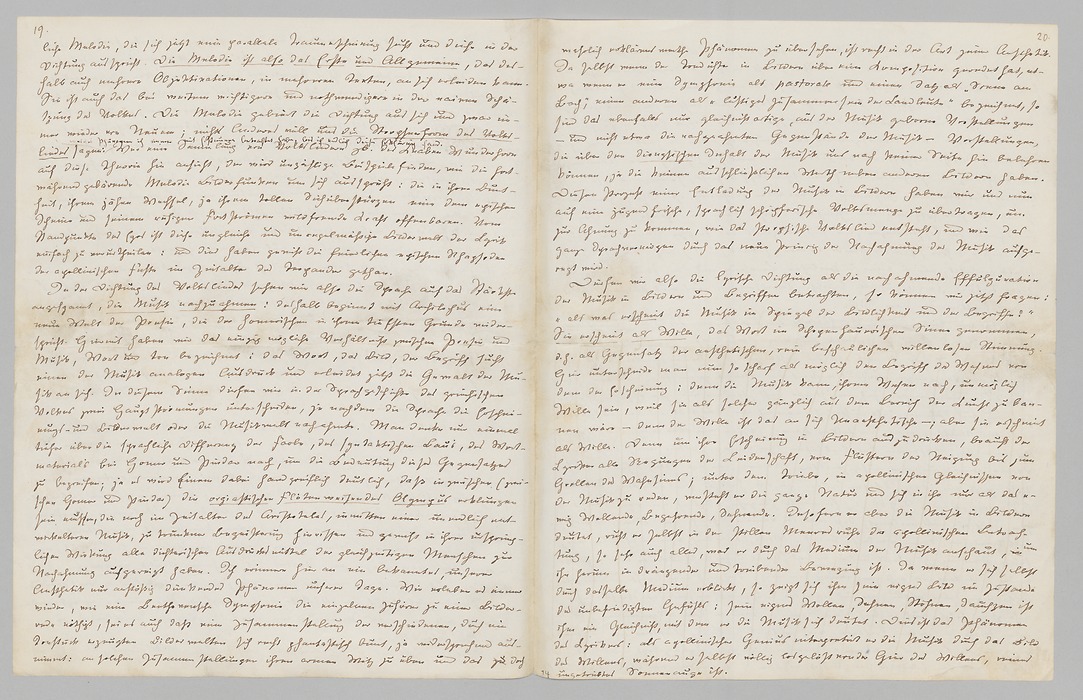 19.
liche Melodie, die sich jetzt eine parallele Traumerscheinung sucht und diese in der
Dichtung ausspricht. Die Melodie ist also das Erste und Allgemeine, das des-
halb auch mehrere Objektivationen, in mehreren Texten, an sich erleiden kann.
Sie ist auch das bei weitem wichtigere und nothwendigere in der naiven Schä-
tzung des Volkes. Die Melodie gebiert die Dichtung aus sich und zwar im-
mer wieder von Neuem; nichts Anderes will uns die Strophenform des Volks-
liedes sagen
Wer eine Sammlung von Volksliedern z.B. des Knaben Wunderhorn
auf diese Theorie hin ansieht, der wird unzählige Beispiele finden, wie die fort-
während gebärende Melodie Bilderfunken um sich aussprüht: die in ihrer Bunt-
heit, ihrem jähen Wechsel, ja ihrem tollen Sichüberstürzen eine dem epischen
Scheine und seinem ruhigen Fortströmen wildfremde Kraft offenbaren. Vom
Standpunkte des Epos ist diese ungleiche und unregelmässige Bilderwelt der Lyrik
einfach zu verurtheilen: und dies haben gewiss die feierlichen epischen Rhapsoden
der apollinischen Feste im Zeitalter des Terpander gethan.
In der Dichtung des Volksliedes sehen wir also die Sprache auf das Stärkste
angespannt, die Musik nachzuahmen: deshalb beginnt mit Archilochus eine
neue Welt der Poesie, die der homerischen in ihrem tiefsten Grunde wider-
spricht. Hiermit haben wir das einzig mögliche Verhältniss zwischen Poesie und
Musik, Wort und Ton bezeichnet: das Wort, das Bild, der Begriff sucht
einen der Musik analogen Ausdruck und erleidet jetzt die Gewalt der Mu-
sik an sich. In diesem Sinne dürfen wir in der Sprachgeschichte des griechischen
Volkes zwei Hauptströmungen unterscheiden, je nachdem die Sprache die Erschei-
nungs- und Bilderwelt oder die Musikwelt nachahmte. Man denke nur einmal
tiefer über die sprachliche Differenz der Farbe, des syntaktischen Bau's, des Wort-
materials bei Homer und Pindar nach, um die Bedeutung dieses Gegensatzes
zu begreifen; ja es wird Einem dabei handgreiflich deutlich, dass zwischen
Homer und Pindar die orgiastischen Flötenweisen des Olympus erklungen
sein müssen, die noch im Zeitalter des Aristoteles, inmitten einer unendlich ent-
wickelteren Musik, zu trunkner Begeisterung hinrissen und gewiss in ihrer ursprüng-
lichen Wirkung alle dichterischen Ausdrucksmittel der gleichzeitigen Menschen zur
Nachahmung aufgereizt haben. Ich erinnere hier an ein bekanntes, unserer
Aesthetik nur anstössig dünkendes Phänomen unserer Tage. Wir erleben es immer
wieder, wie eine Beethovensche Symphonie die einzelnen Zuhörer zu einer Bilder-
rede nöthigt, sei es auch dass eine Zusammenstellung der verschiedenen, durch ein
Tonstück erzeugten Bilderwelten sich recht phantastisch bunt, ja widersprechend aus-
nimmt: an solchen Zusammenstellungen ihren armen Witz zu üben und das
20.
wahrlich erklärenswerthe Phänomen zu übersehen, ist recht in der Art jener Aesthetik.
Ja selbst wenn der Tondichter in Bildern über eine Komposition geredet hat, et-
wa wenn er eine Symphonie als pastorale und einen Satz als „Scene am
Bach", einen anderen als „lustiges Zusammensein der Landleute" bezeichnet, so
sind das ebenfalls nur gleichnissartige, aus der Musik geborne Vorstellungen
— und nicht etwa die nachgeahmten Gegenstände der Musik — Vorstellungen,
die über den dionysischen Inhalt der Musik uns nach keiner Seite hin belehren
können, ja die keinen ausschliesslichen Werth neben anderen Bildern haben.
Diesen Prozess einer Entladung der Musik in Bildern haben wir uns nun
auf eine jugendfrische, sprachlich schöpferische Volksmenge zu übertragen, um
zur Ahnung zu kommen, wie das strophische Volkslied entsteht, und wie das
ganze Sprachvermögen durch das neue Princip der Nachahmung der Musik aufge-
regt wird.
Dürfen wir also die lyrische Dichtung als die nachahmende Effulguration
der Musik in Bildern und Begriffen betrachten, so können wir jetzt fragen:
„als was erscheint die Musik im Spiegel der Bildlichkeit und der Begriffe?"
Sie erscheint als Wille, das Wort im Schopenhauerischen Sinne genommen,
d.h. als Gegensatz der aesthetischen, rein beschaulichen willenlosen Stimmung.
Hier unterscheide man nun so scharf als möglich den Begriff des Wesens von
dem der Erscheinung: denn die Musik kann, ihrem Wesen nach, unmöglich
Wille sein, weil sie als solcher gänzlich aus dem Bereich der Kunst zu ban-
nen wäre — denn der Wille ist das an sich Unaesthetische —; aber sie erscheint
als Wille. Denn um ihre Erscheinung in Bildern auszudrücken, braucht der
Lyriker alle Regungen der Leidenschaft, vom Flüstern der Neigung bis zum
Grollen des Wahnsinns; unter dem Triebe, in apollinischen Gleichnissen von
der Musik zu reden, versteht er die ganze Natur und sich in ihr nur als das e-
wig Wollende, Begehrende, Sehnende. Insofern er aber die Musik in Bildern
deutet, ruht er selbst in der stillen Meeresruhe der apollinischen Betrach-
tung, so sehr auch alles, was er durch das Medium der Musik anschaut, um
ihn herum in drängender und treibender Bewegung ist. Ja wenn er sich selbst
durch dasselbe Medium erblickt, so zeigt sich ihm sein eignes Bild im Zustande
des unbefriedigten Gefühls: sein eignes Wollen, Sehnen, Stöhnen, Jauchzen ist
ihm ein Gleichniss, mit dem er die Musik sich deutet. Dies ist das Phänomen
des Lyrikers: als apollinischer Genius interpretirt er die Musik durch das Bild
des Willens, während er selbst völlig losgelöst von der Gier des Willens, reines
ungetrübtes Sonnenauge ist.